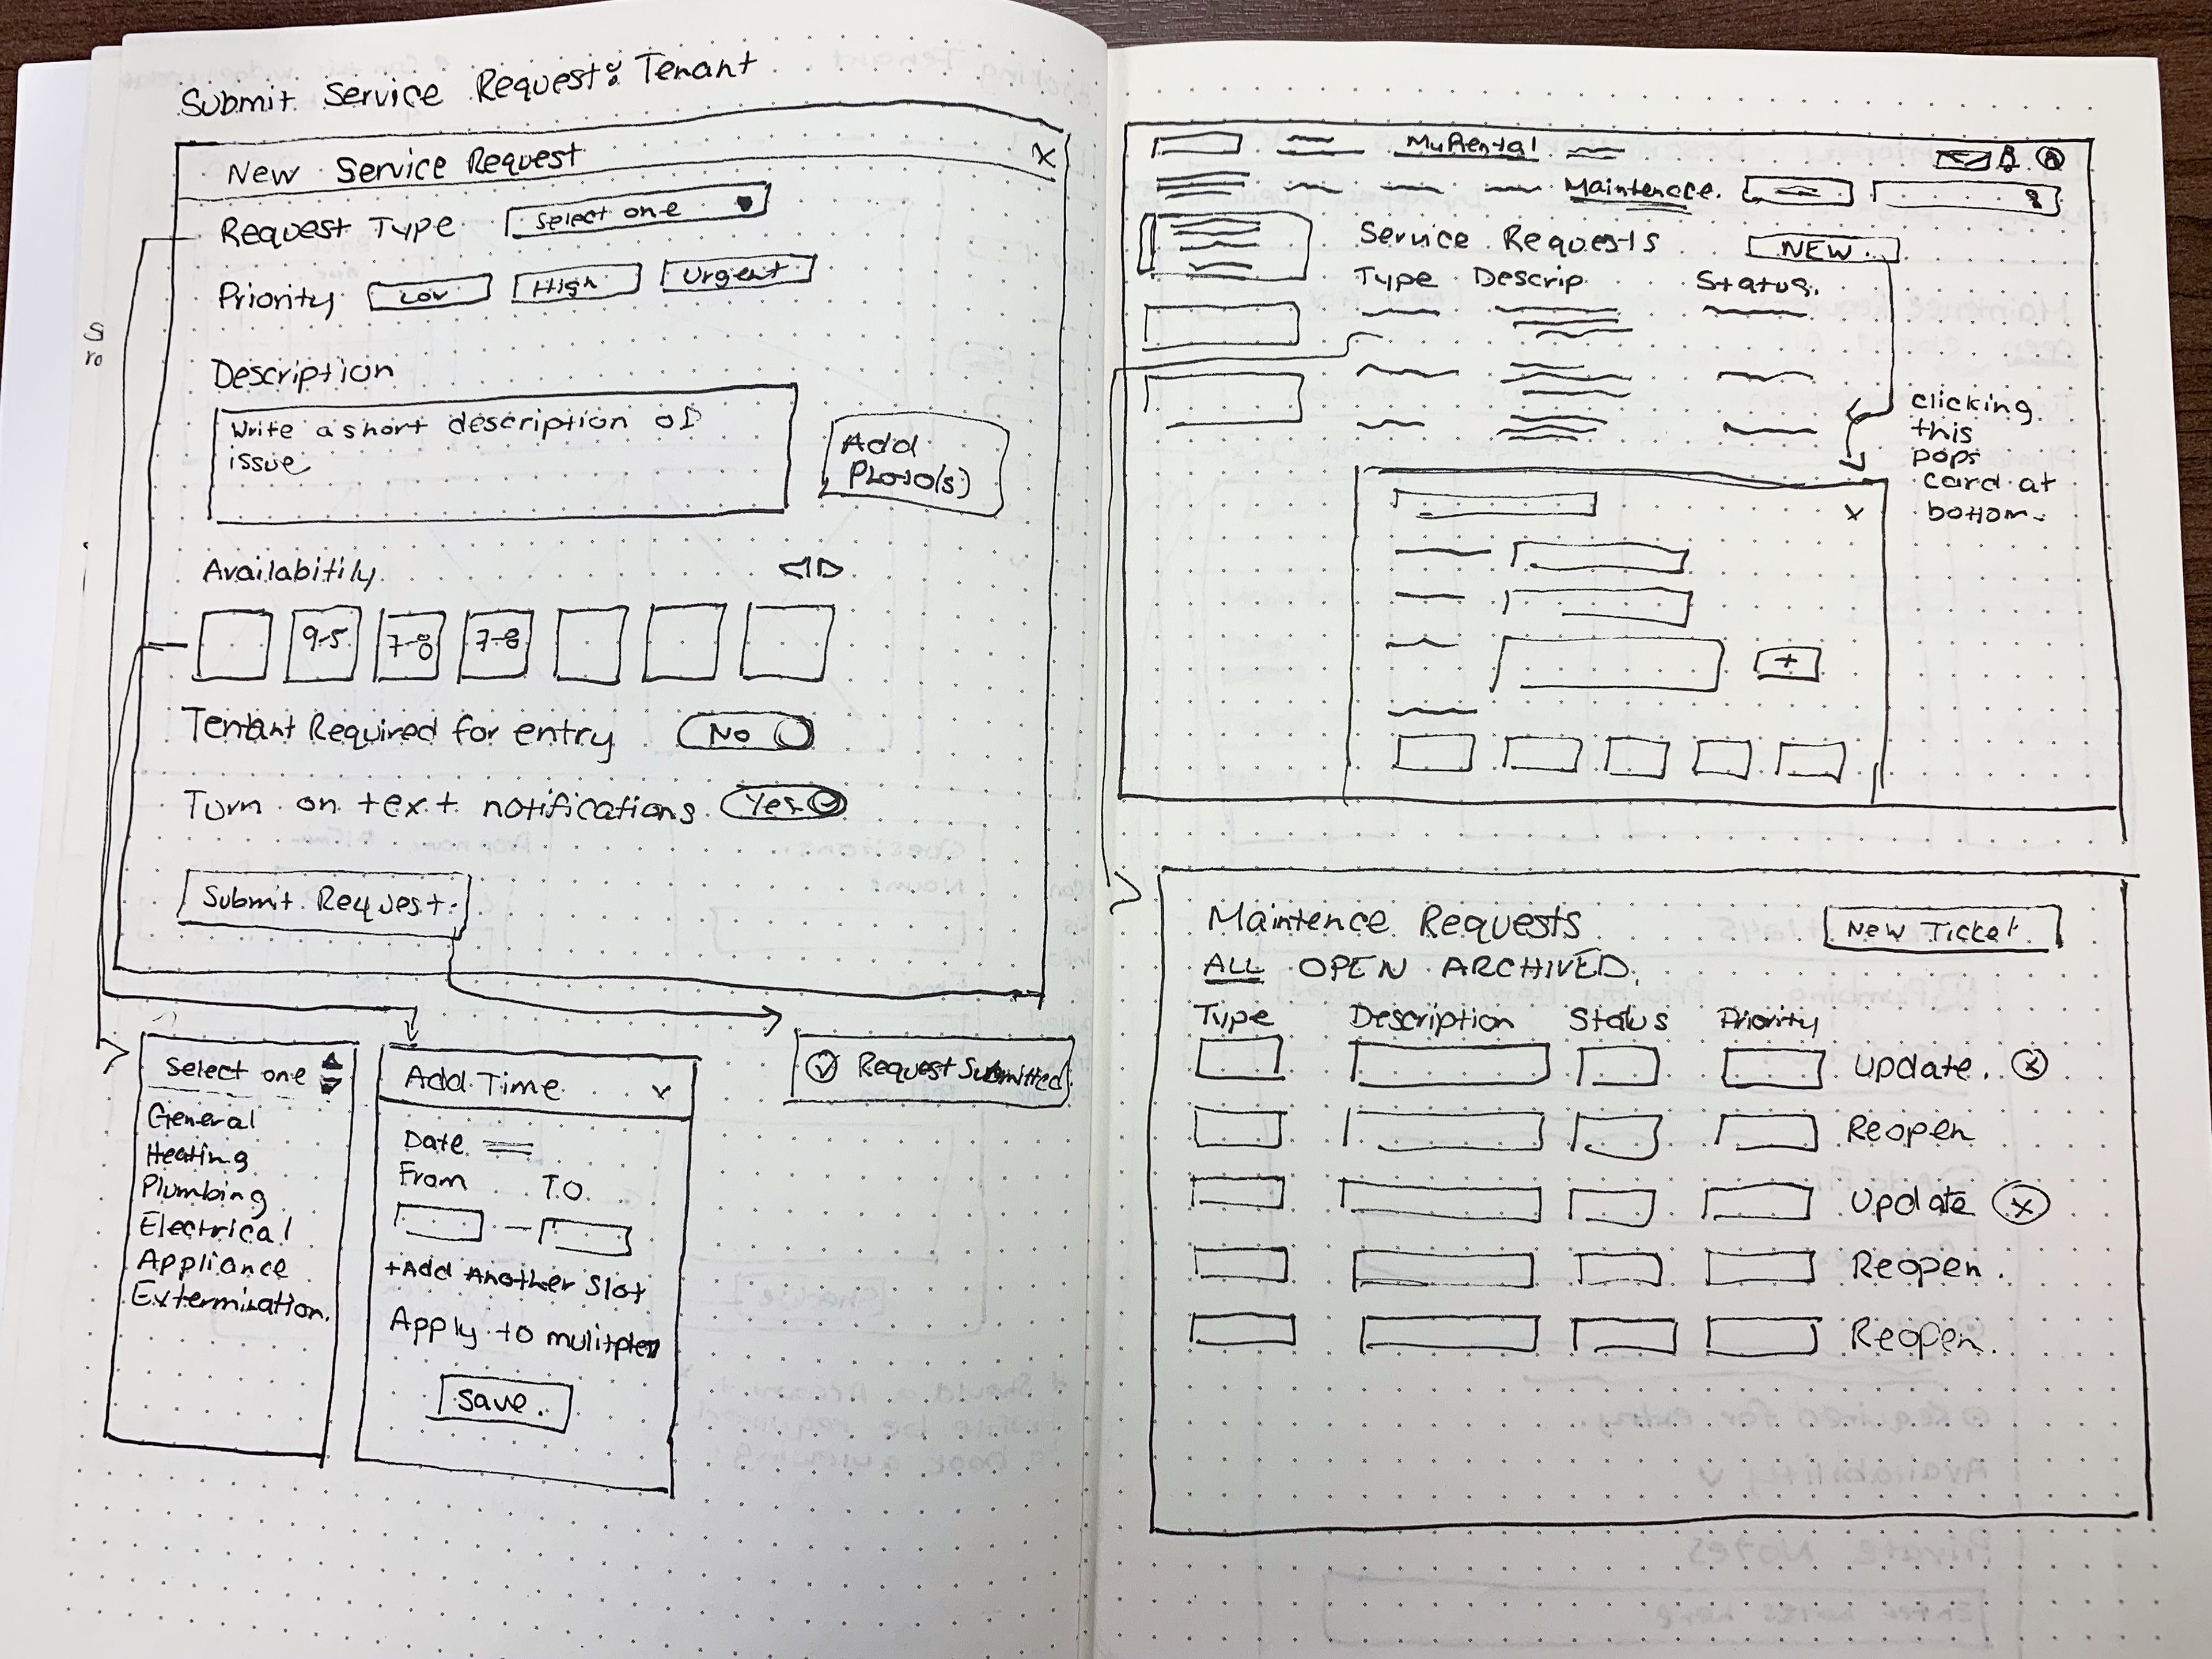 Submit Service Request: Tenant
New Service Request X
Request Type Select one
Priority Low High Urgent
Description
Write a short description of
issue
Add
Photo(s)
Availabitily
9-5 7-8 7-8
Tentant Required for entry No
Turn on text notifications Yes
Submit Request
Select one
General
Heating
Plumbing
Electrical
Appliance
Extermination.
Add Time x
Date
From TO.
+Add Another Slot
Apply to
Save.
Request Submitted
MyRental
Maintenace.
Service Requests NEW
Type Descrip Status.
clicking
this
pops
card at
bottom.
x
+
Maintence Requests New Ticket
ALL OPEN ARCHIVED.
Type Description Status Priority
Update. x
Reopen
Update x
Reopen.
Reopen.